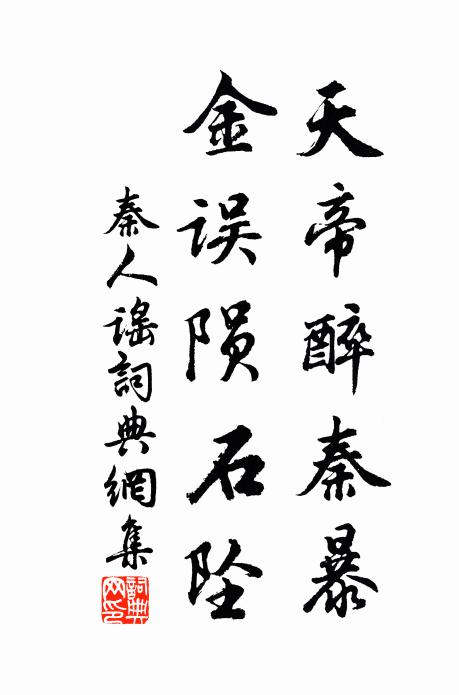 天帝醉秦暴
金误陨石坠
秦人謡詞典網集
詞典网印